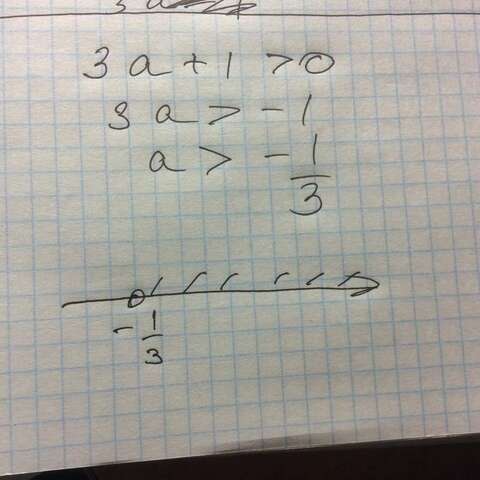 3a + 1 > 0
3a > -1
a > -1/3
-1/3